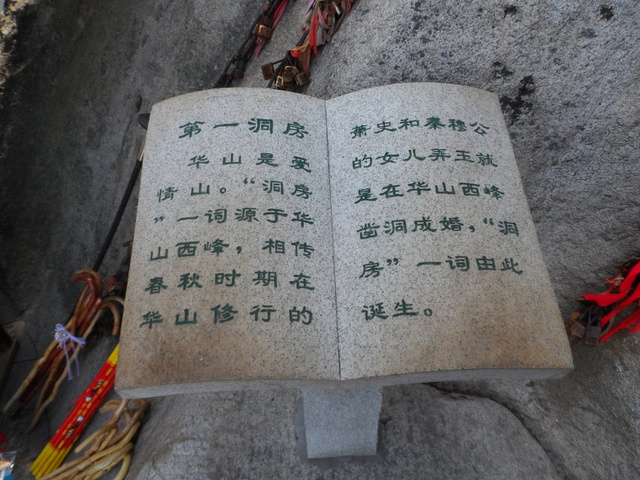 第一洞房
华山是爱
情山。“洞房
”一词源于华
山西峰，相传
春秋时期在
华山修行的
萧史和秦穆公
的女儿弄玉就
是在华山西峰
凿洞成婚，“洞
房”一词由此
诞生。